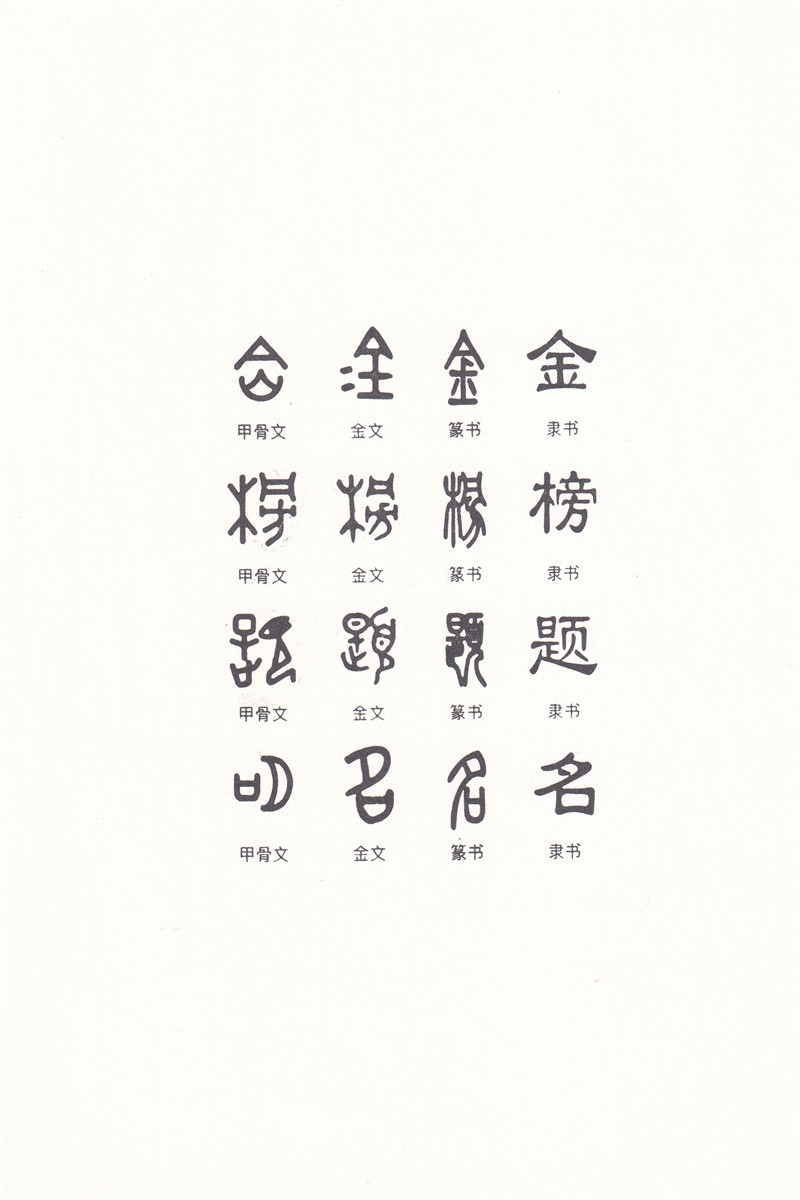 金 金 金 金
甲骨文 金文 篆书 隶书
榜 榜 榜 榜
甲骨文 金文 篆书 隶书
题 题 题 题
甲骨文 金文 篆书 隶书
名 名 名 名
甲骨文 金文 篆书 隶书